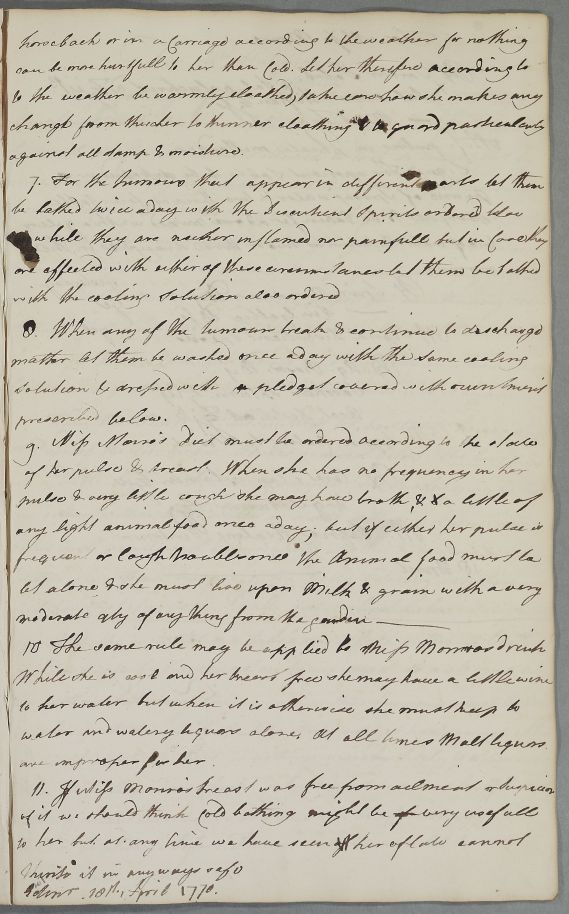 horseback or in a Carriage according to the weather for nothing
can be more hurtfull to her than Cold. Let her therefore according to
to the weather be warmly cloathed, take care how she makes any
change from thicker to thinner cloathing & guard particularly
against all damp & moisture.
7. For the tumours that appear in different parts let them
be bathed twice a day with the Discutient Spirits ordered below
while they are neither inflamed nor painfull but in Case they
are affected with either of these circumstances let them be bathed
with the cooling solution also ordered
8. When any of the tumours break & continue to discharge
matter let them be washed once a day with the same cooling
solution & dressed with a pledget covered with ountment
prescribed below.
9. Miss Monro's Diet must be ordered acording to the state
of her pulse & breast. When she has no frequency in her
pulse & very little cough she may have broth & a little of
any light animal food once a day; but if either her pulse is
frequent or Cough troublesome the Animal food must be
let alone & she must live upon Milk & grain with a very
moderate qty of any thing from the garden
10 The same rule may be applied to Miss Monros drink
While she is cool and her breast free she may have a little wine
to her water but when it is otherwise she must keep to
water and watery liquors alone. At all times Malt liquors
are improper for her.
11. If Miss Monros breast was free from ailment or Suspicion
of it we should think Cold bathing might be very usefull
to her but at any time we have seen her of late cannot
think it in anyways safe
Edinr. 18th. April 1770.